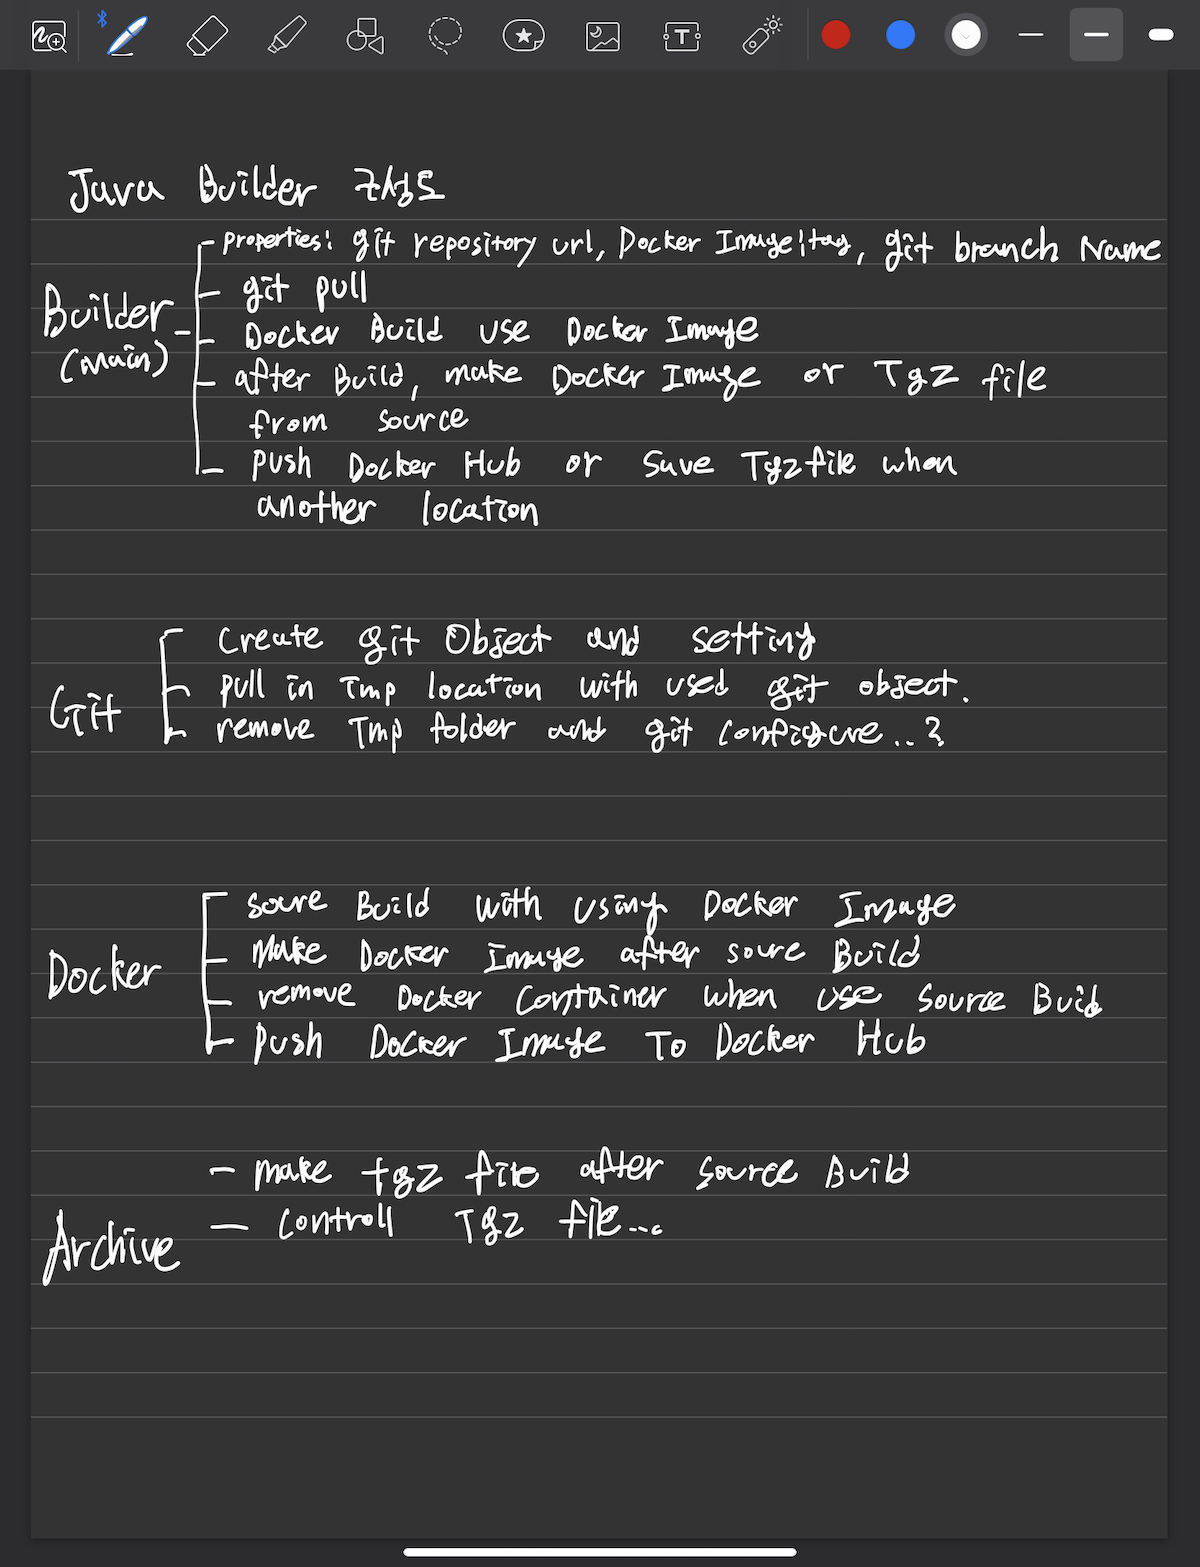 Java Builder 구성도
- properties: git repository url, Docker Image:tag, git branch Name
Builder
(main)
- git pull
- Docker Build use Docker Image
- after Build, make Docker Image or Tgz file
from source
- push Docker Hub or Save Tgz file when
another location
Git
create git Object and setting
pull in Tmp location with used git object.
remove Tmp folder and git configure..?
Docker
soure Build with using Docker Image
make Docker Image after soure Build
remove Docker Container when use source Build
push Docker Image To Docker Hub
Archive
- make tgz file after source Build
- controll Tgz file...